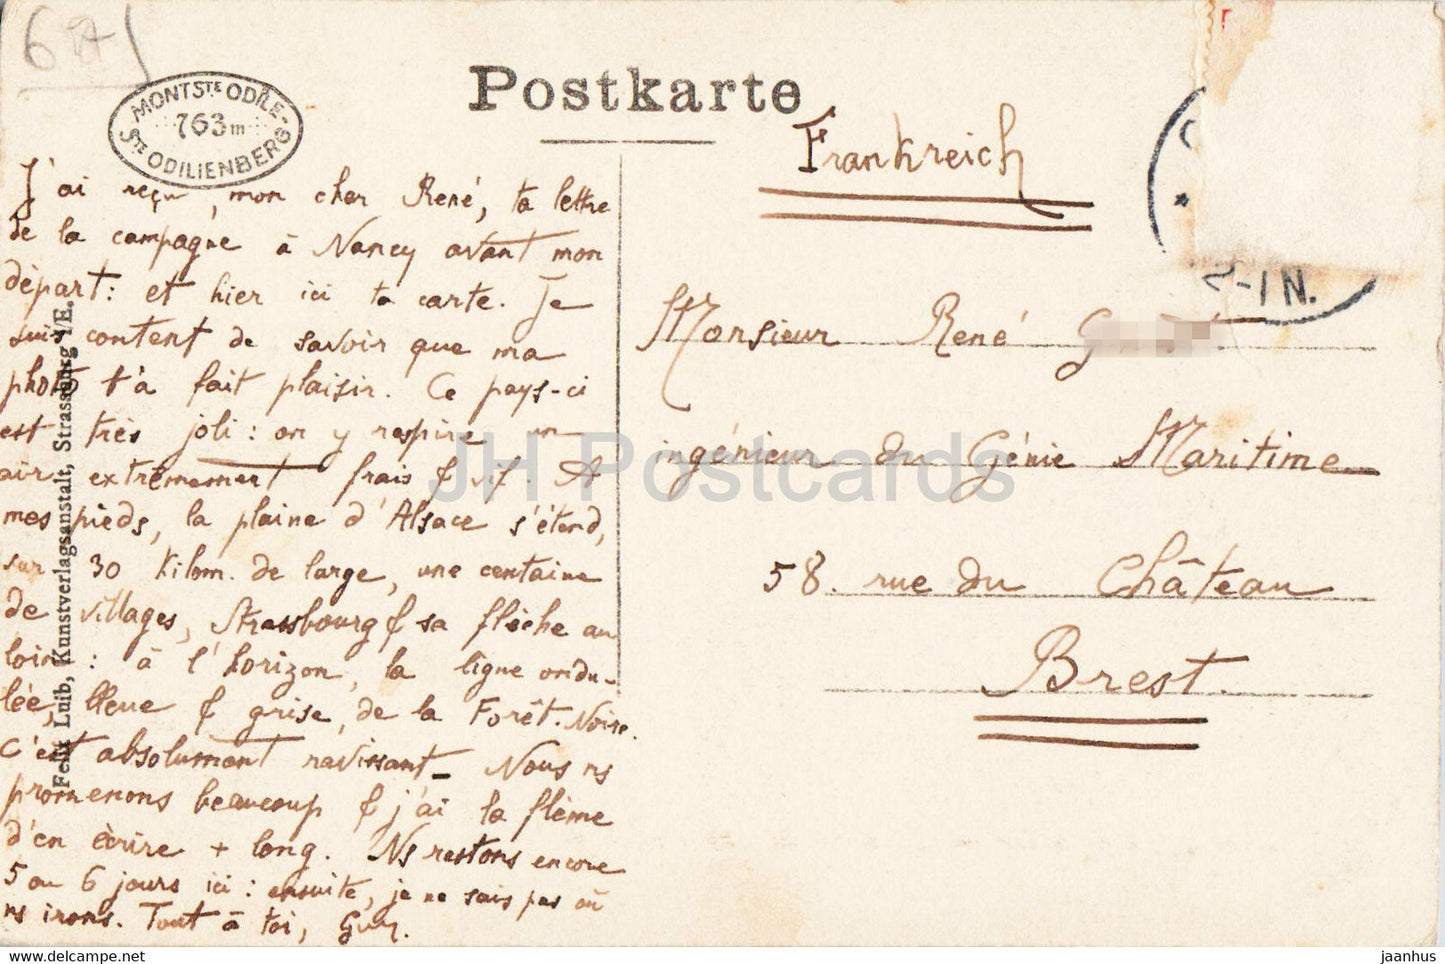 681
MONT STE ODILE -
763 m
STE ODILIENBERG
Postkarte
Frankreich
2-1 N.
J'ai reçu, mon cher René, ta lettre
de la campagne à Nancy avant mon
départ : et hier ici ta carte. Je
suis content de savoir que ma
photo t'a fait plaisir. Ce pays-ci
est très joli : on y respire un
air extrêmement frais & vif. A
mes pieds, la plaine d'Alsace s'étend,
sur 30 kilom. de large, une centaine
de villages, Strassbourg & sa flèche au
loin : à l'horizon, la ligne ondu-
lée, bleue & grise, de la Forêt-Noire.
C'est absolument ravissant_ Nous ns
promenons beaucoup & j'ai la flème
d'en écrire + long. Ns restons encore
5 ou 6 jours ici : ensuite, je ne sais pas où
ns irons. Tout à toi, Guy.
Monsieur René
ingénieur du Génie Maritime
58. rue du Château
Brest.
Felix Luib, Kunstverlagsanstalt, Strassburg i/E.
JH Postcards
jaanhus